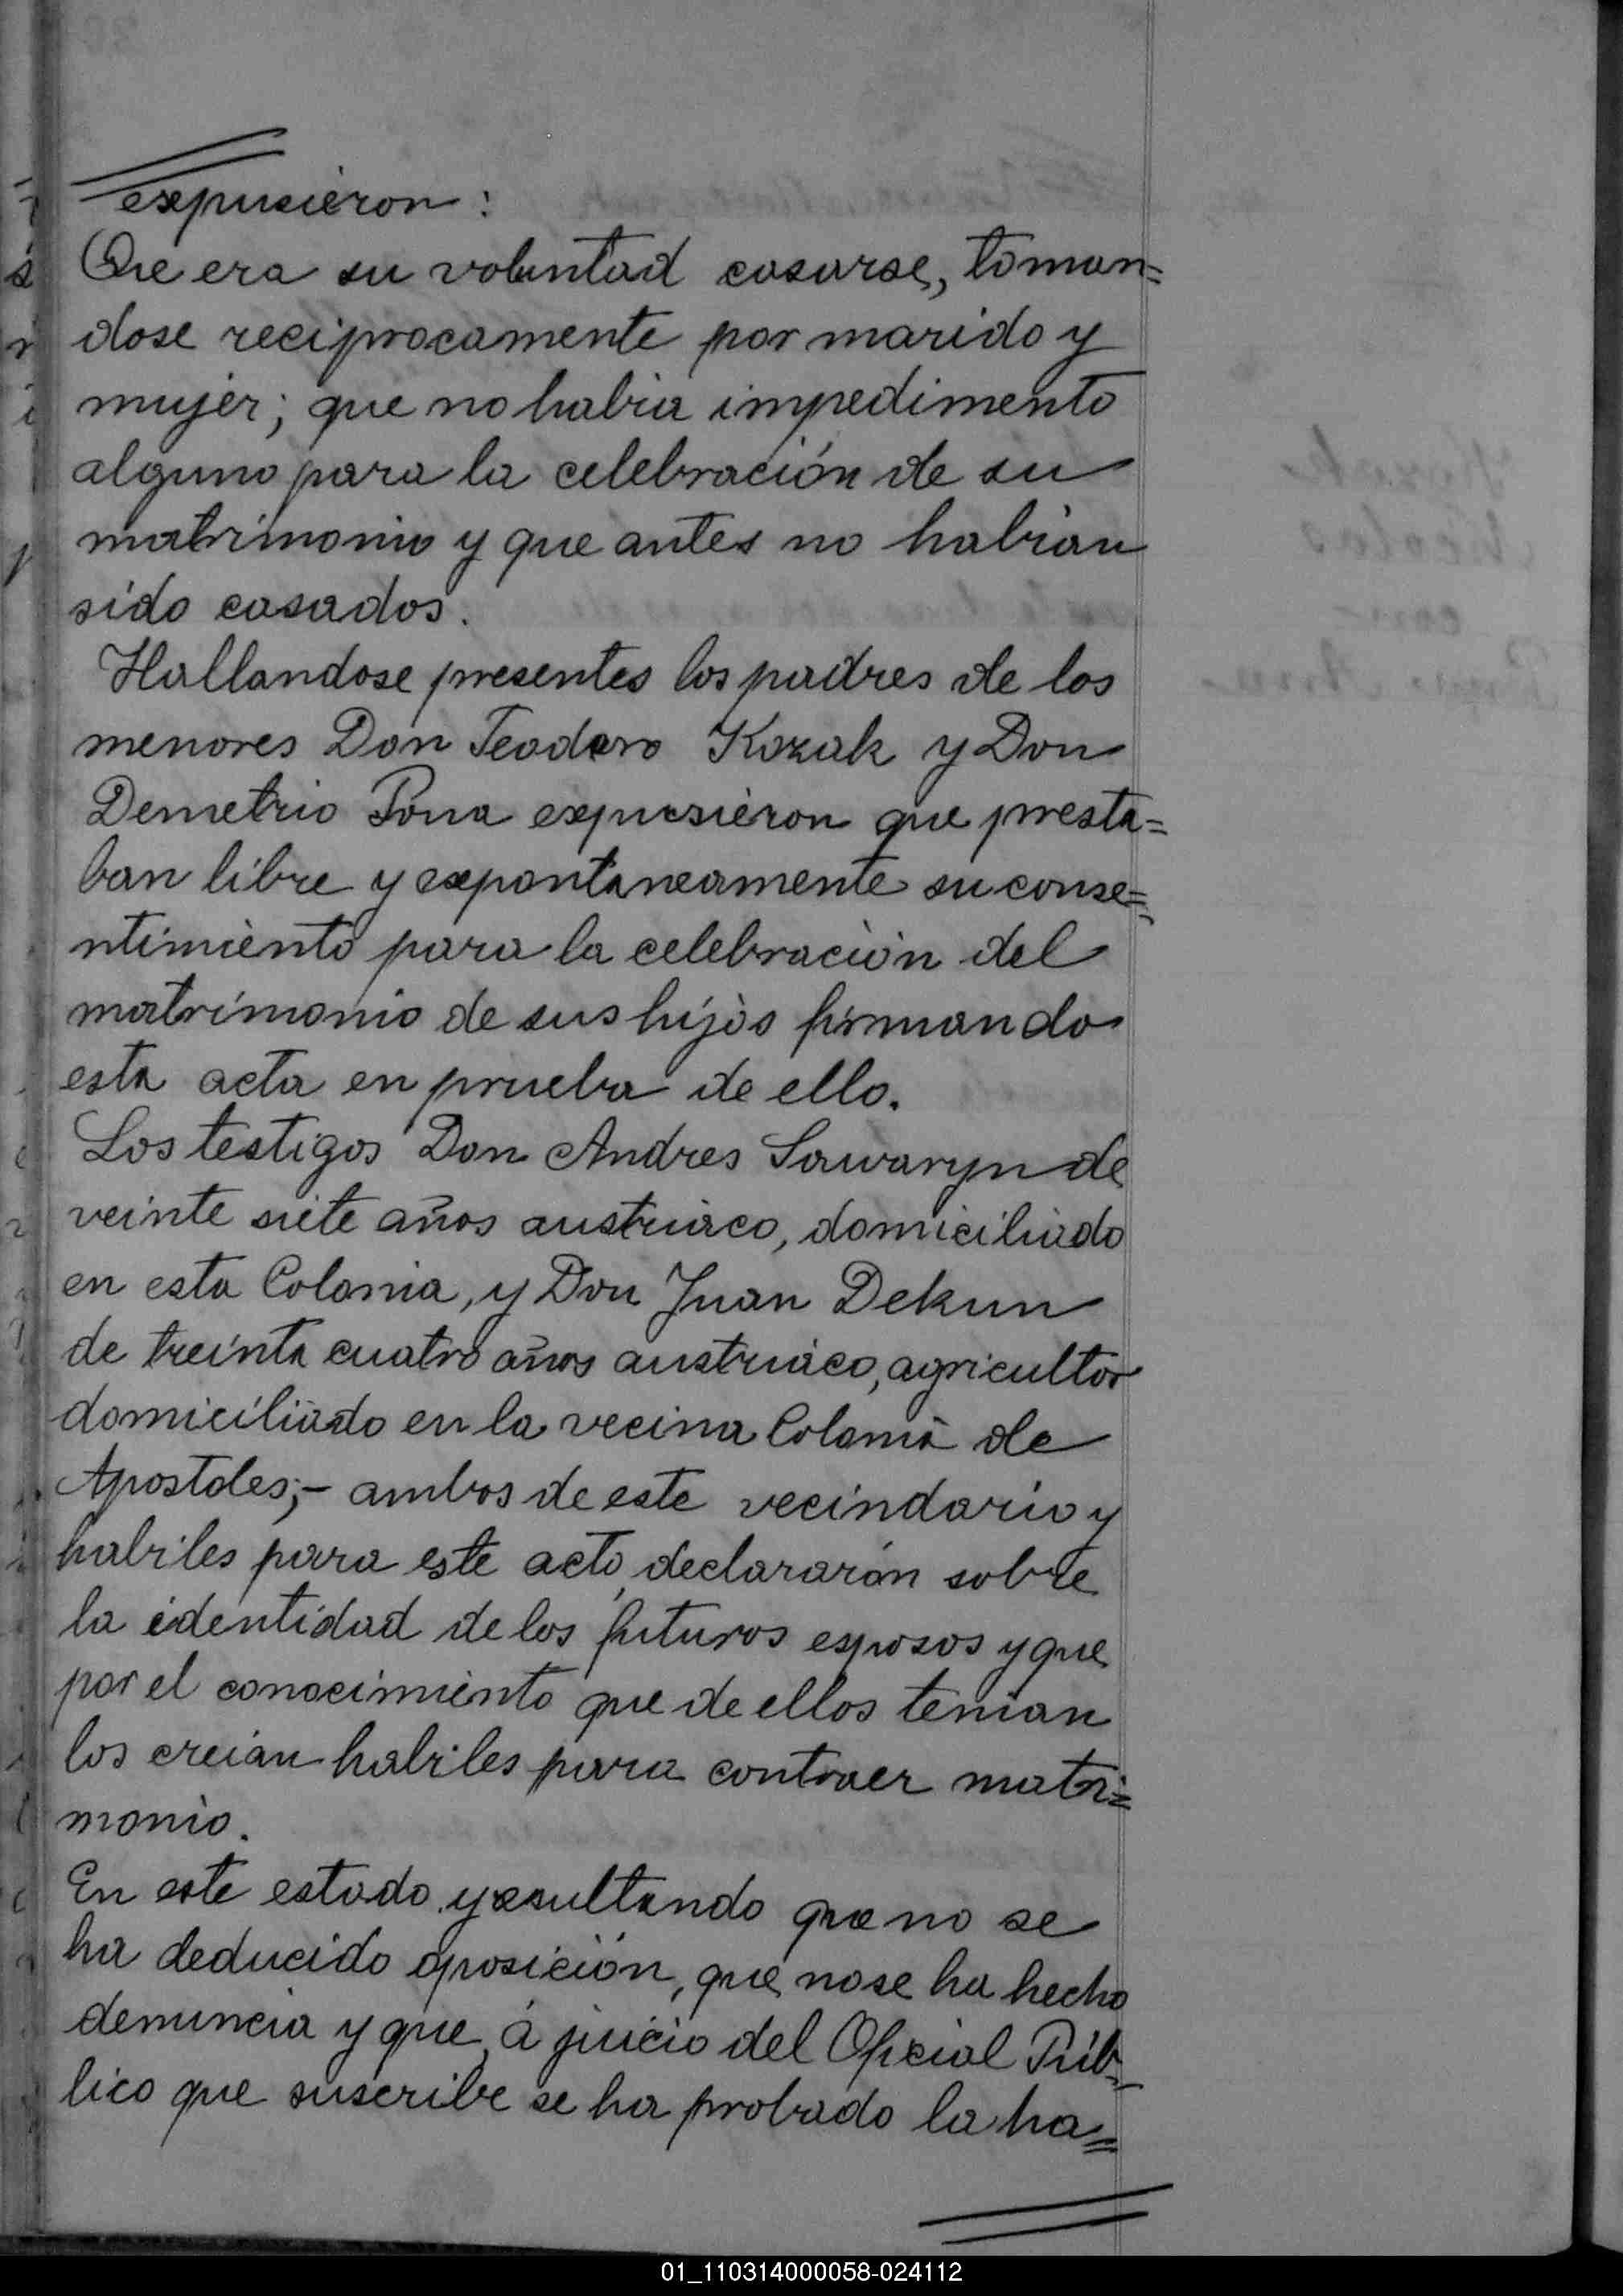 expusieron:
Que era su voluntad casarse, toman=
dose reciprocamente por marido y
mujer; que no habia impedimento
alguno para la celebración de su
matrimonio y que antes no habian
sido casados.
Hallandose presentes los padres de los
menores Don Teodoro Kozak y Don
Demetrio Pona expusieron que presta=
ban libre y expontaneamente su conse=
ntimiento para la celebración del
matrimonio de sus hijos firmando
esta acta en prueba de ello.
Los testigos Don Andres Sawaryn de
veinte siete años austriaco, domiciliado
en esta Colonia, y Don Juan Dekun
de treinta cuatro años austriaco, agricultor
domiciliado en la vecina Colonia de
Apostoles;- ambos de este vecindario y
habiles para este acto, declararón sobre
la identidad de los futuros esposos y que
por el conocimiento que de ellos tenian
los creian habiles para contraer matri=
monio.
En este estado y resultando que no se
ha deducido oposición, que no se ha hecho
denuncia y que á juicio del Oficial Púb=
lico que suscribe se ha probado la ha=
01_110314000058-024112